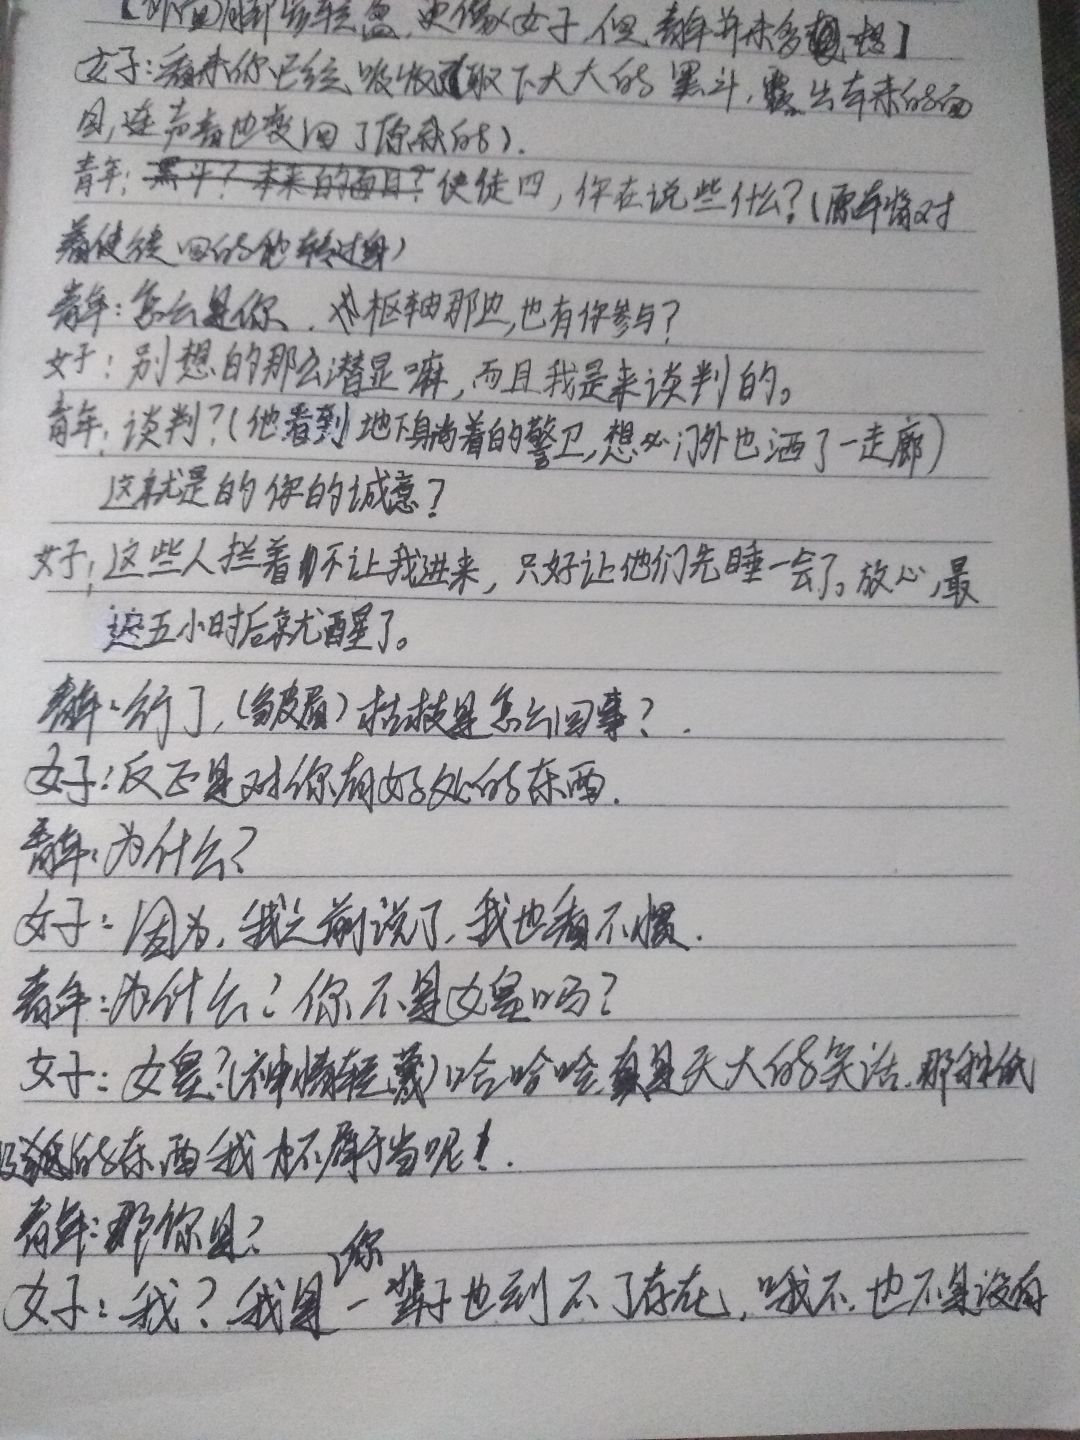 脚步轻盈,更像女子,但青年并未多想】
女子:看来你已经吸收取下大大的黑斗,露出本来的面
目,连声音也变回了原来的).
青年:使徒四,你在说些什么?(原本背对
着使徒四的他转过身)
青年:怎么是你、枢轴那边,也有你参与?
女子:别想的那么潜显嘛,而且我是来谈判的。
青年:谈判?(他看到地下躺着的警卫,想必门外也洒了一走廊)
这就是的你的诚意?
女子:这些人拦着不让我进来,只好让他们先睡一会了。放心,最
迟五小时后就醒了。
青年:行了,(皱眉)枯枝是怎么回事?.
女子:反正是对你有好处的东西.
青年:为什么?
女子:因为,我之前说了,我也看不惯.
青年:为什么?你不是女皇吗?
女子:女皇?(神情轻蔑)哈哈哈,真是天大的笑话.那种低
级的东西我才不屑于当呢!.
青年:那你是?
女子:我?我是你一辈子也到不了存在,哦不,也不是没有